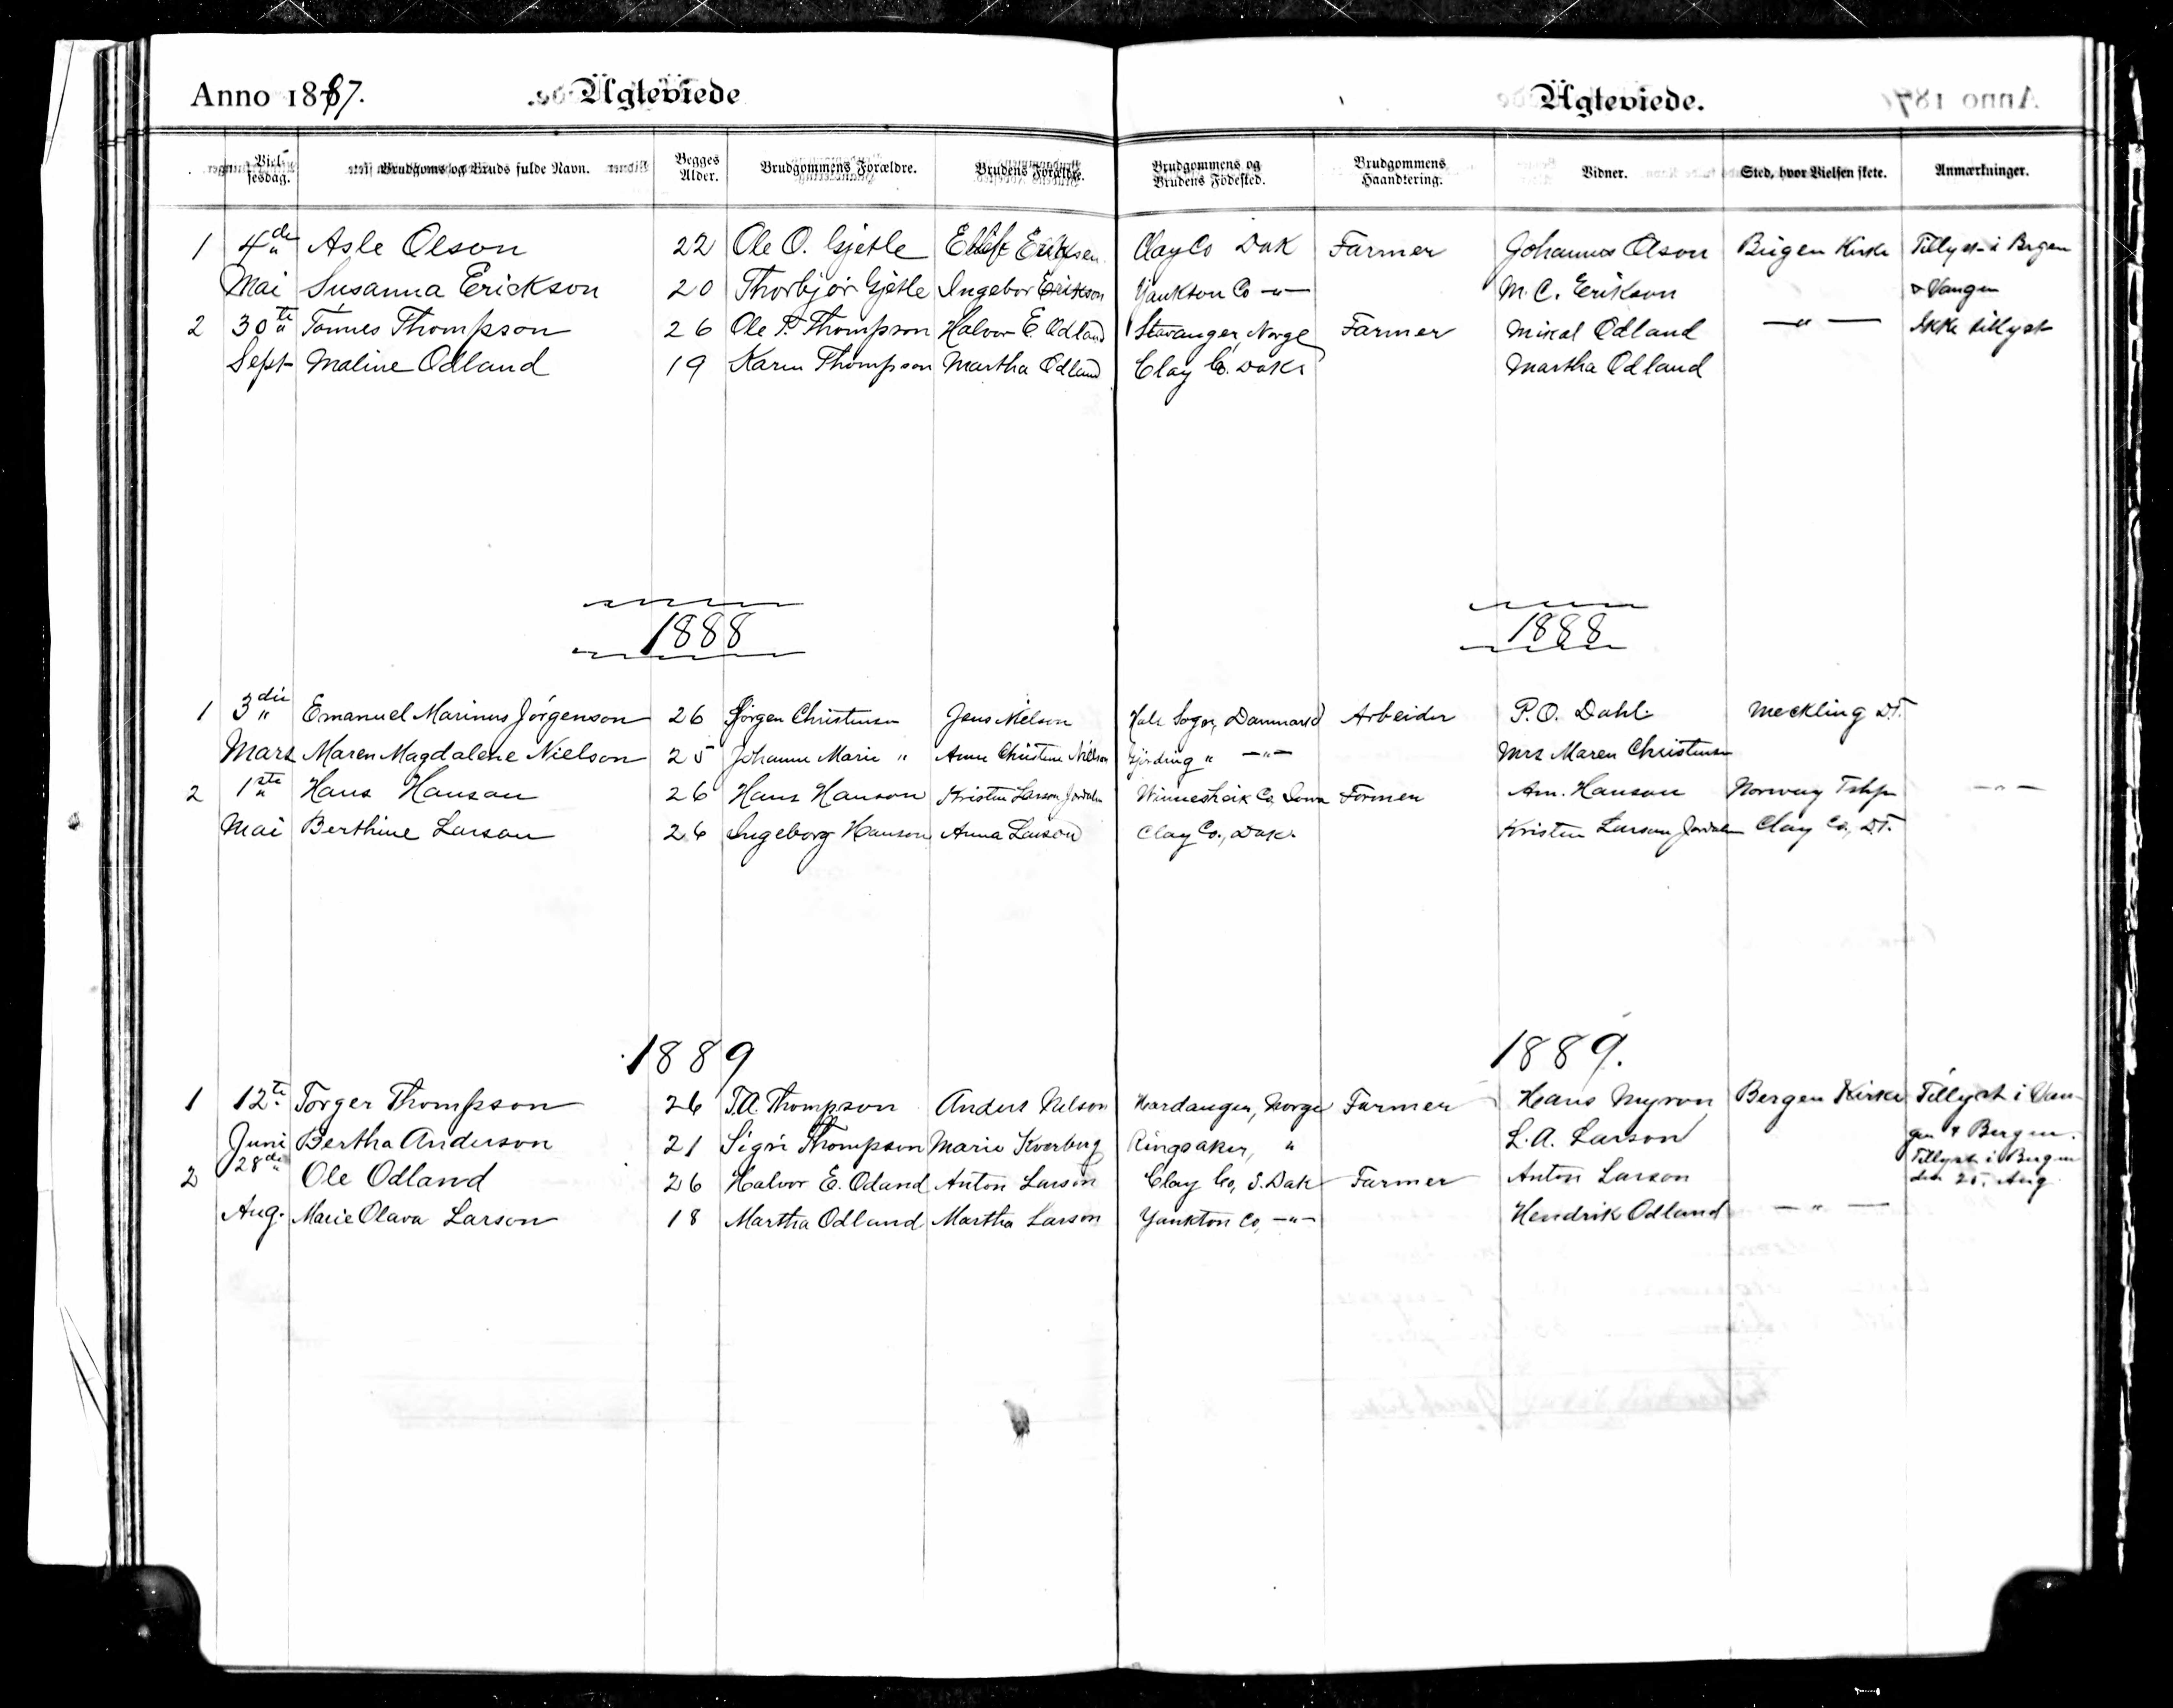 Anno 1887. Ägteviede Ägteviede.
Viel-sesdag. Brudgoms og Bruds fulde Navn. Begges Alder. Brudgommens Forældre. Brudens Forældre. Brudgommens og Brudens Födested. Brudgommens Haandtering. Vidner. Sted, hvor Vielsen skete. Anmærkninger.
1 4de Asle Olson 22 Ole O. Gjetle Ellef Eriksen Clay Co Dak Farmer Johannes Olson Bergen Kirke Tillyst i Bergen
Mai Susanna Erickson 20 Thorbjør Gjetle Ingebor Erikson Yankton Co —"— M. C. Erikson & Vangen
2 30te Tönnes Thompson 26 Ole P. Thompson Halvor E. Odland Stavanger, Norge Farmer Mikal Odland —"— Ikke tillyst
Sept Maline Odland 19 Karen Thompson Martha Odland Clay Co. Dak Martha Odland
1888 1888
1 3die Emanuel Marinus Jörgenson 26 Jörgen Christensen Jens Nielson Hals Sogn, Danmark Arbeider P. O. Dahl Meckling D.T.
Mars Maren Magdalene Nielson 25 Johanne Marie " Anne Christine Nielson Gjörding " —"— Mrs Maren Christensen
2 1ste Hans Hanson 26 Hans Hanson Kristen Larson Jordalen Winnesheik Co, Iowa Farmer Am. Hanson Norway Tshp —"—
Mai Berthine Larson 26 Ingeborg Hanson Anna Larson Clay Co., Dak. Kristen Larson Jordalen Clay Co., D.T.
1889 1889.
1 12te Torger Thompson 26 T.A. Thompson Anders Nelson Hardanger, Norge Farmer Hans Myron Bergen Kirke Tillyst i Van-
Juni Bertha Anderson 21 Sigri Thompson Marie Kverberg Ringsaker, " L. A. Larson gen & Bergen.
2 28de Ole Odland 26 Halvor E. Odland Anton Larson Clay Co, S. Dak Farmer Anton Larson Tillyst i Bergen
Aug. Marie Olava Larson 18 Martha Odland Martha Larson Yankton Co, —"— Hendrik Odland —"— den 25. Aug